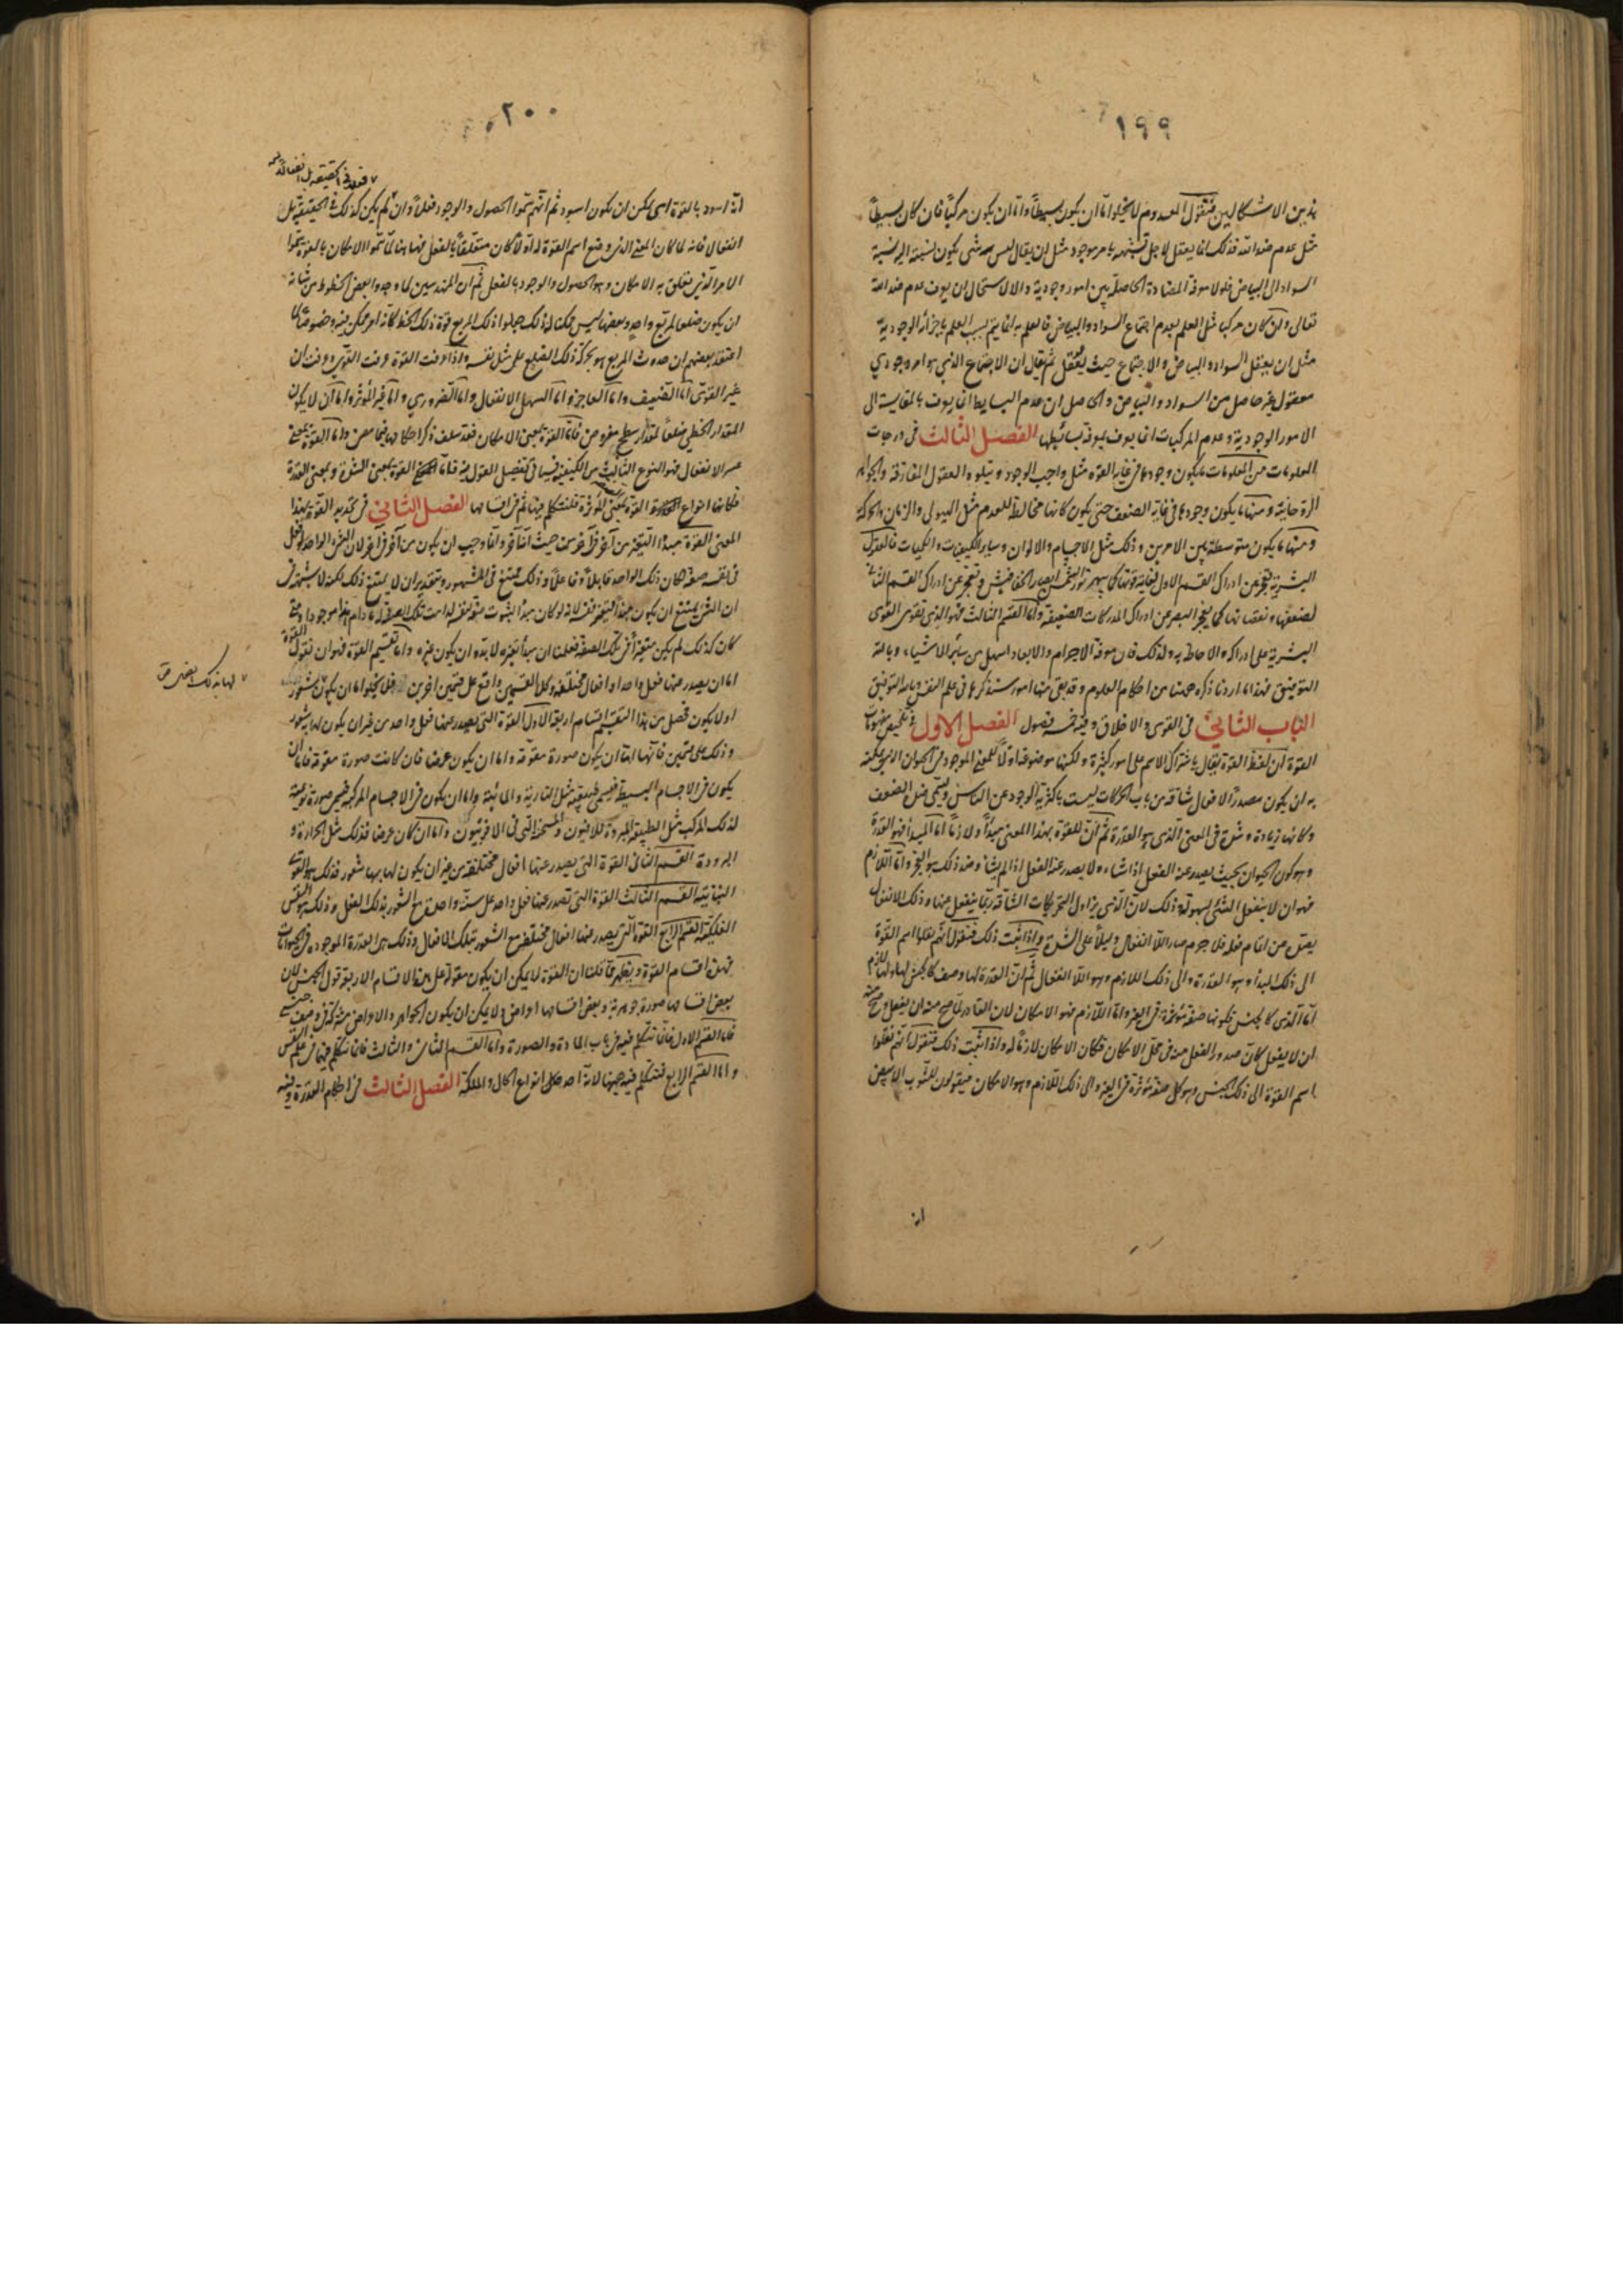 ١٩٩
هذين الاشكالين فنقول المعدوم لا يخلو اما ان يكون بسيطا واما ان يكون مركبا فان كان بسيطا
مثل عدم ضد الله فذلك انما يعقل لاجل تشبيهه بامر موجود مثل ان يقال ليس له شئ يكون نسبته اليه نسبة
السواد الى البياض فلولا معرفة المضادة الحاصلة بين امور وجودية والا لاستحال ان يعرف عدم ضد الله
تعالى وان كان مركبا مثل العلم بعدم اجتماع السواد والبياض فالعلم به انما يتم بسبب العلم باجزائه الوجودية
مثل ان يعقل السواد والبياض والاجتماع حيث يعقل ثم يقال ان الاجتماع الذي هو امر وجودي
معقول غير حاصل من السواد والبياض والحاصل ان عدم البسايط انما يعرف بالمقايسة الى
الامور الوجودية وعدم المركبات انما يعرف بمعرفة بسائطها الفصل الثالث في درجات
المعلومات من المعلومات ما يكون وجودها في غاية القوة مثل واجب الوجود ويتلوه العقول المفارقة والجواهر
الروحانية ومنها ما يكون وجودها في غاية الضعف حتى يكون كانها مخالط للعدم مثل الهيولى والزمان والحركة
ومنها ما يكون متوسطة بين الامرين وذلك مثل الاجسام والالوان وساير الكيفيات والكميات فالعقول
البشرية تعجز عن ادراك القسم الاول لغاية قوتها كما يبهر نور الشمس ابصار الخفافيش وتعجز عن ادراك القسم الثاني
لضعفها ونقصانها كما يعجز البصر عن ادراك المدركات الضعيفة واما القسم الثالث فهو الذي تقوى القوى
البشرية على ادراكه والاحاطة به ولذلك فان معرفة الاجرام والابعاد اسهل من سائر الاشياء وبالله
التوفيق فهذا ما اردنا ذكره ههنا من احكام العلوم وقد بقى منها امور سنذكرها في علم النفس وبالله التوفيق
الباب الثاني في القوى والاخلاق وفيه خمسة فصول الفصل الاول في تلخيص مفهومات
القوة ان لفظ القوة يقال باشتراك الاسم على امور كثيرة ولكنها موضوعة اولا للمعنى الموجود في الحيوان الذي يمكنه
به ان يكون مصدرا لافعال شاقة من باب الحركات ليست باكثرية الوجود عن الناس ويسمى ضده الضعف
وكانها زيادة وشدة في المعنى الذي هو القدرة ثم ان للقوة بهذا المعنى مبدأ ولازما اما المبدأ فهو القدرة
وهو كون الحيوان بحيث يصدر عنه الفعل اذا شاء ولا يصدر عنه الفعل اذا لم يشأ وضد ذلك هو العجز واما اللازم
فهو ان لا ينفعل الشئ بسهولة وذلك لان الذي يزاول التحريكات الشاقة ربما ينفعل عنها وذلك الانفعال
يصده عن اتمام فعله فلا جرم صار اللا انفعال دليلا على الشدة واذا ثبت ذلك فنقول انهم نقلوا اسم القوة
الى ذلك المبدأ وهو القدرة والى ذلك اللازم وهو اللا انفعال ثم ان القدرة لها وصف كالجنس لها ولها لازم
اما الذي كالجنس فكونها صفة مؤثرة في الغير واما اللازم فهو الامكان لان القادر لما صح منه ان يفعل وصح منه
ان لا يفعل كان صدور الفعل منه في محل الامكان فكان الامكان لازما له واذا ثبت ذلك فنقول انهم نقلوا
اسم القوة الى ذلك الجنس وهو كل صفة مؤثرة في الغير والى ذلك اللازم وهو الامكان فيقولون للثوب الابيض
انه
٢٠٠
انه اسود بالقوة اى يمكن ان يكون اسود ثم انهم سموا الحصول والوجود فعلا وان لم يكن كذلك في الحقيقة بل
انفعالا فانه لما كان المعنى الذي وضع اسم القوة له اولا كان متعلقا بالفعل فههنا لما سموا الامكان بالقوة سموا
الامر الذي يتعلق به الامكان وهو الحصول والوجود بالفعل ثم ان المهندسين لما وجدوا بعض الخطوط من شانه
ان يكون ضلعا لمربع واحد وبعضها ليس ممكنا له ذلك جعلوا ذلك المربع قوة ذلك الخط كانه امر ممكن فيه وخصوصا لما
اعتقد بعضهم ان حدوث المربع هو بحركة ذلك الضلع على مثل نفسه واذا عرفت القوة عرفت القوى وعرفت ان
غير القوى اما الضعيف واما العاجز واما السهل الانفعال واما الضروري واما غير المؤثر واما ان لا يكون
المقدار الخطى ضلعا لمقدار سطح مفروض فاما القوة بمعنى الامكان فقد سلف ذكر احكامها فيما مضى واما القوة بمعنى
عسر الانفعال فهو النوع الثالث من الكيفية فسياتى تفصيل القول فيه فاما القوة بمعنى الشدة وبمعنى القدرة
فكانها انواع القوة بمعنى المؤثرة فلنتكلم فيها ثم في اقسامها الفصل الثاني في تحديد القوة بهذا
المعنى القوة مبدأ التغير من آخر في آخر من حيث انه آخر وانما وجب ان يكون من آخر في آخر لان الشئ الواحد لو فعل
في نفسه صفة لكان ذلك الواحد قابلا وفاعلا وذلك ممتنع في المشهور وبتقدير ان لا يمتنع ذلك لكنه لا شبهة في
ان الشئ يمتنع ان يكون مبدأ لتغير نفسه لانه لو كان مبدأ لثبوت صفة لنفسه لدامت تلك الصفة له ما دام هو موجودا ومتى
كان كذلك لم يكن متغيرا في تلك الصفة فعلمنا ان مبدأ تغيره لا بد وان يكون غيره واما تقسيم القوة فهو ان نقول القوة
اما ان يصدر عنها فعل واحد او افعال مختلفة وكلا القسمين واقع على قسمين اخرين فلا يخلو اما ان يكون شعور
او لا يكون فحصل من هذا التقسيم اقسام اربعة الاول القوة التي يصدر عنها فعل واحد من غير ان يكون لها به شعور
وذلك على قسمين فانها اما ان يكون صورة مقومة واما ان يكون عرضا فان كانت صورة مقومة فاما ان
يكون في الاجسام البسيطة فيسمى طبيعة مثل النارية والمائية واما ان يكون في الاجسام المركبة فيسمى صورة نوعية
لذلك المركب مثل الطبيعة المبردة للافيون والمسخنة التي في الافربيون واما ان كان عرضا فذلك مثل الحرارة و
البرودة القسم الثاني القوة التي يصدر عنها افعال مختلفة من غير ان يكون لها بها شعور فذلك هو القوة
النباتية القسم الثالث القوة التي تصدر عنها فعل واحد على سنة واحدة مع الشعور بذلك الفعل وذلك هو النفس
الفلكية القسم الرابع القوة التي يصدر عنها افعال مختلفة مع الشعور بتلك الافعال وذلك هي القدرة الموجودة في الحيوانات
فهذه اقسام القوة ويظهر مما قلنا ان القوة لا يمكن ان يكون مقولة على هذه الاقسام الاربعة قول الجنس لان
بعض اقسامها صورة جوهرية وبعض اقسامها اعراض ولا يمكن ان يكون الجواهر والاعراض مشتركة في وصف جنسى
فاما القسم الاول فانا نتكلم فيه في باب المادة والصورة واما القسم الثاني والثالث فانا نتكلم فيهما في علم النفس
واما القسم الرابع فنتكلم فيه ههنا لانه احد انواع الحال والملكة الفصل الثالث في احكام القدرة وفيه